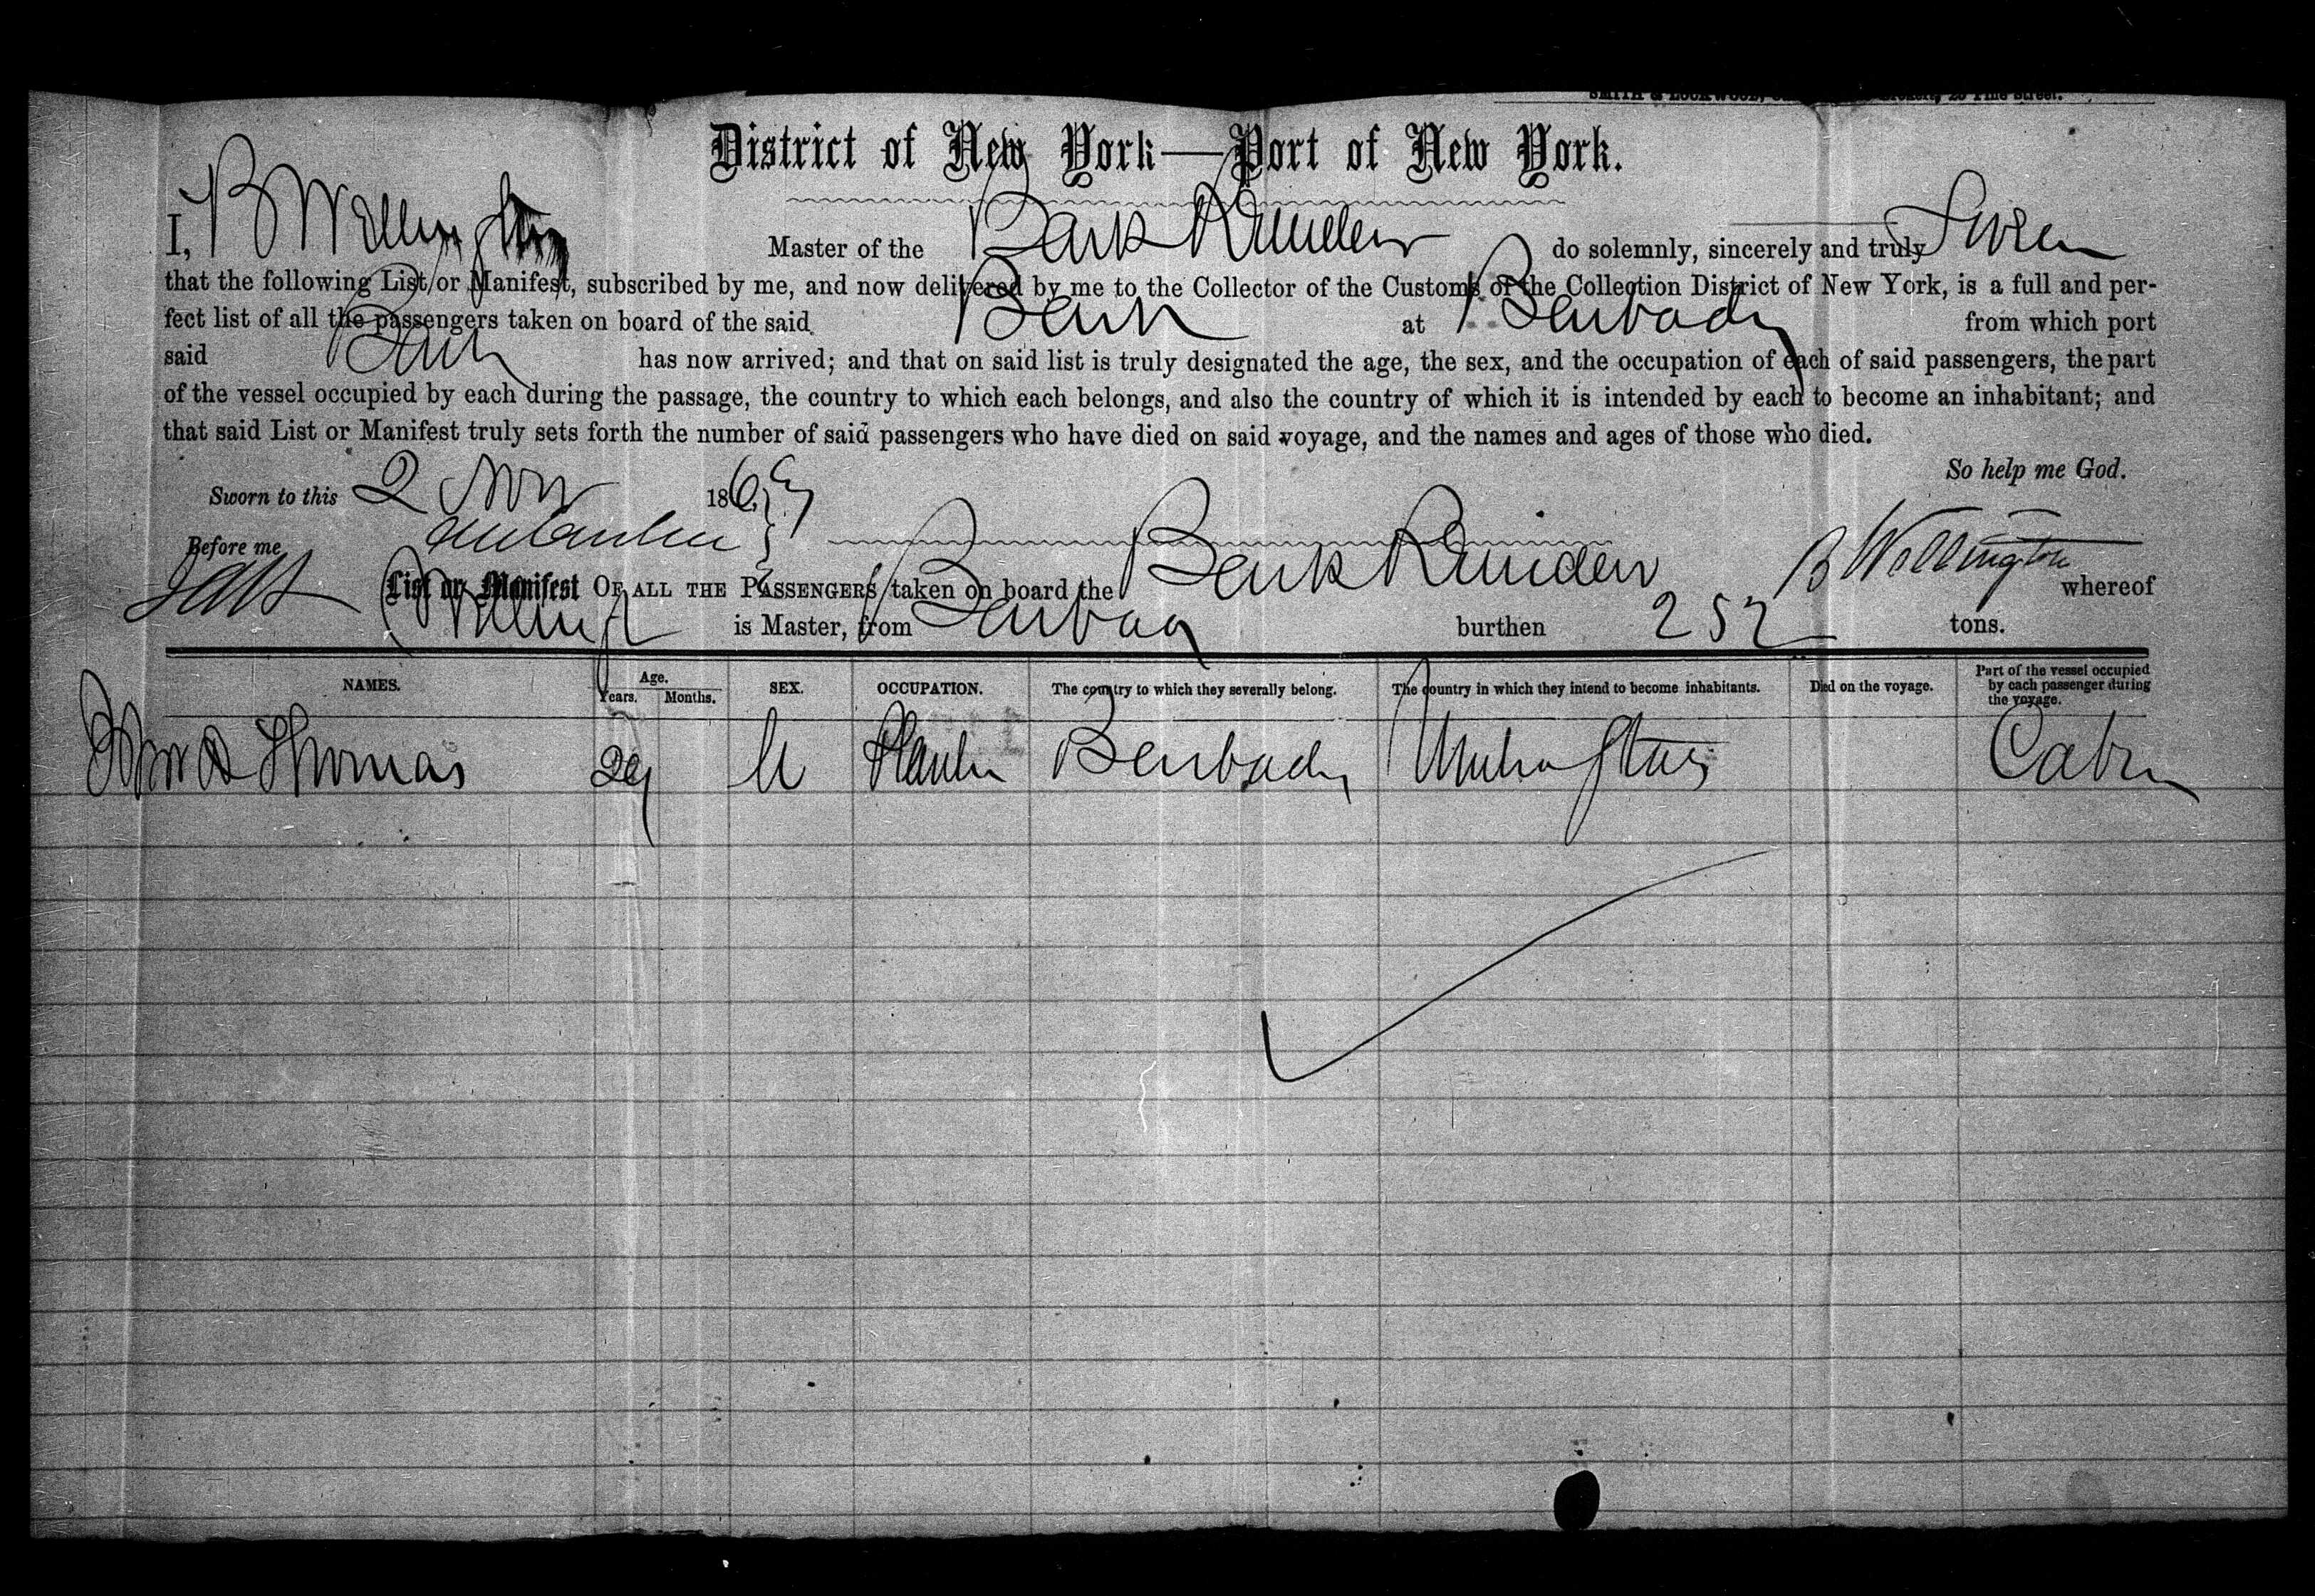 District of New York—Port of New York.
I, B Wellington Master of the Bark do solemnly, sincerely and truly Swear
that the following List or Manifest, subscribed by me, and now delivered by me to the Collector of the Customs of the Collection District of New York, is a full and per-
fect list of all the passengers taken on board of the said Bark at Barbados from which port
said Bark has now arrived; and that on said list is truly designated the age, the sex, and the occupation of each of said passengers, the part
of the vessel occupied by each during the passage, the country to which each belongs, and also the country of which it is intended by each to become an inhabitant; and
that said List or Manifest truly sets forth the number of said passengers who have died on said voyage, and the names and ages of those who died.
So help me God.
Sworn to this 2 Nov 186
Before me
B Wellington
List or Manifest OF ALL THE PASSENGERS taken on board the Bark whereof
is Master, from burthen 252 tons.
NAMES. Age. Years. Months. SEX. OCCUPATION. The country to which they severally belong. The country in which they intend to become inhabitants. Died on the voyage. Part of the vessel occupied by each passenger during the voyage.
Thomas 29 M Planter Barbados United States Cabin